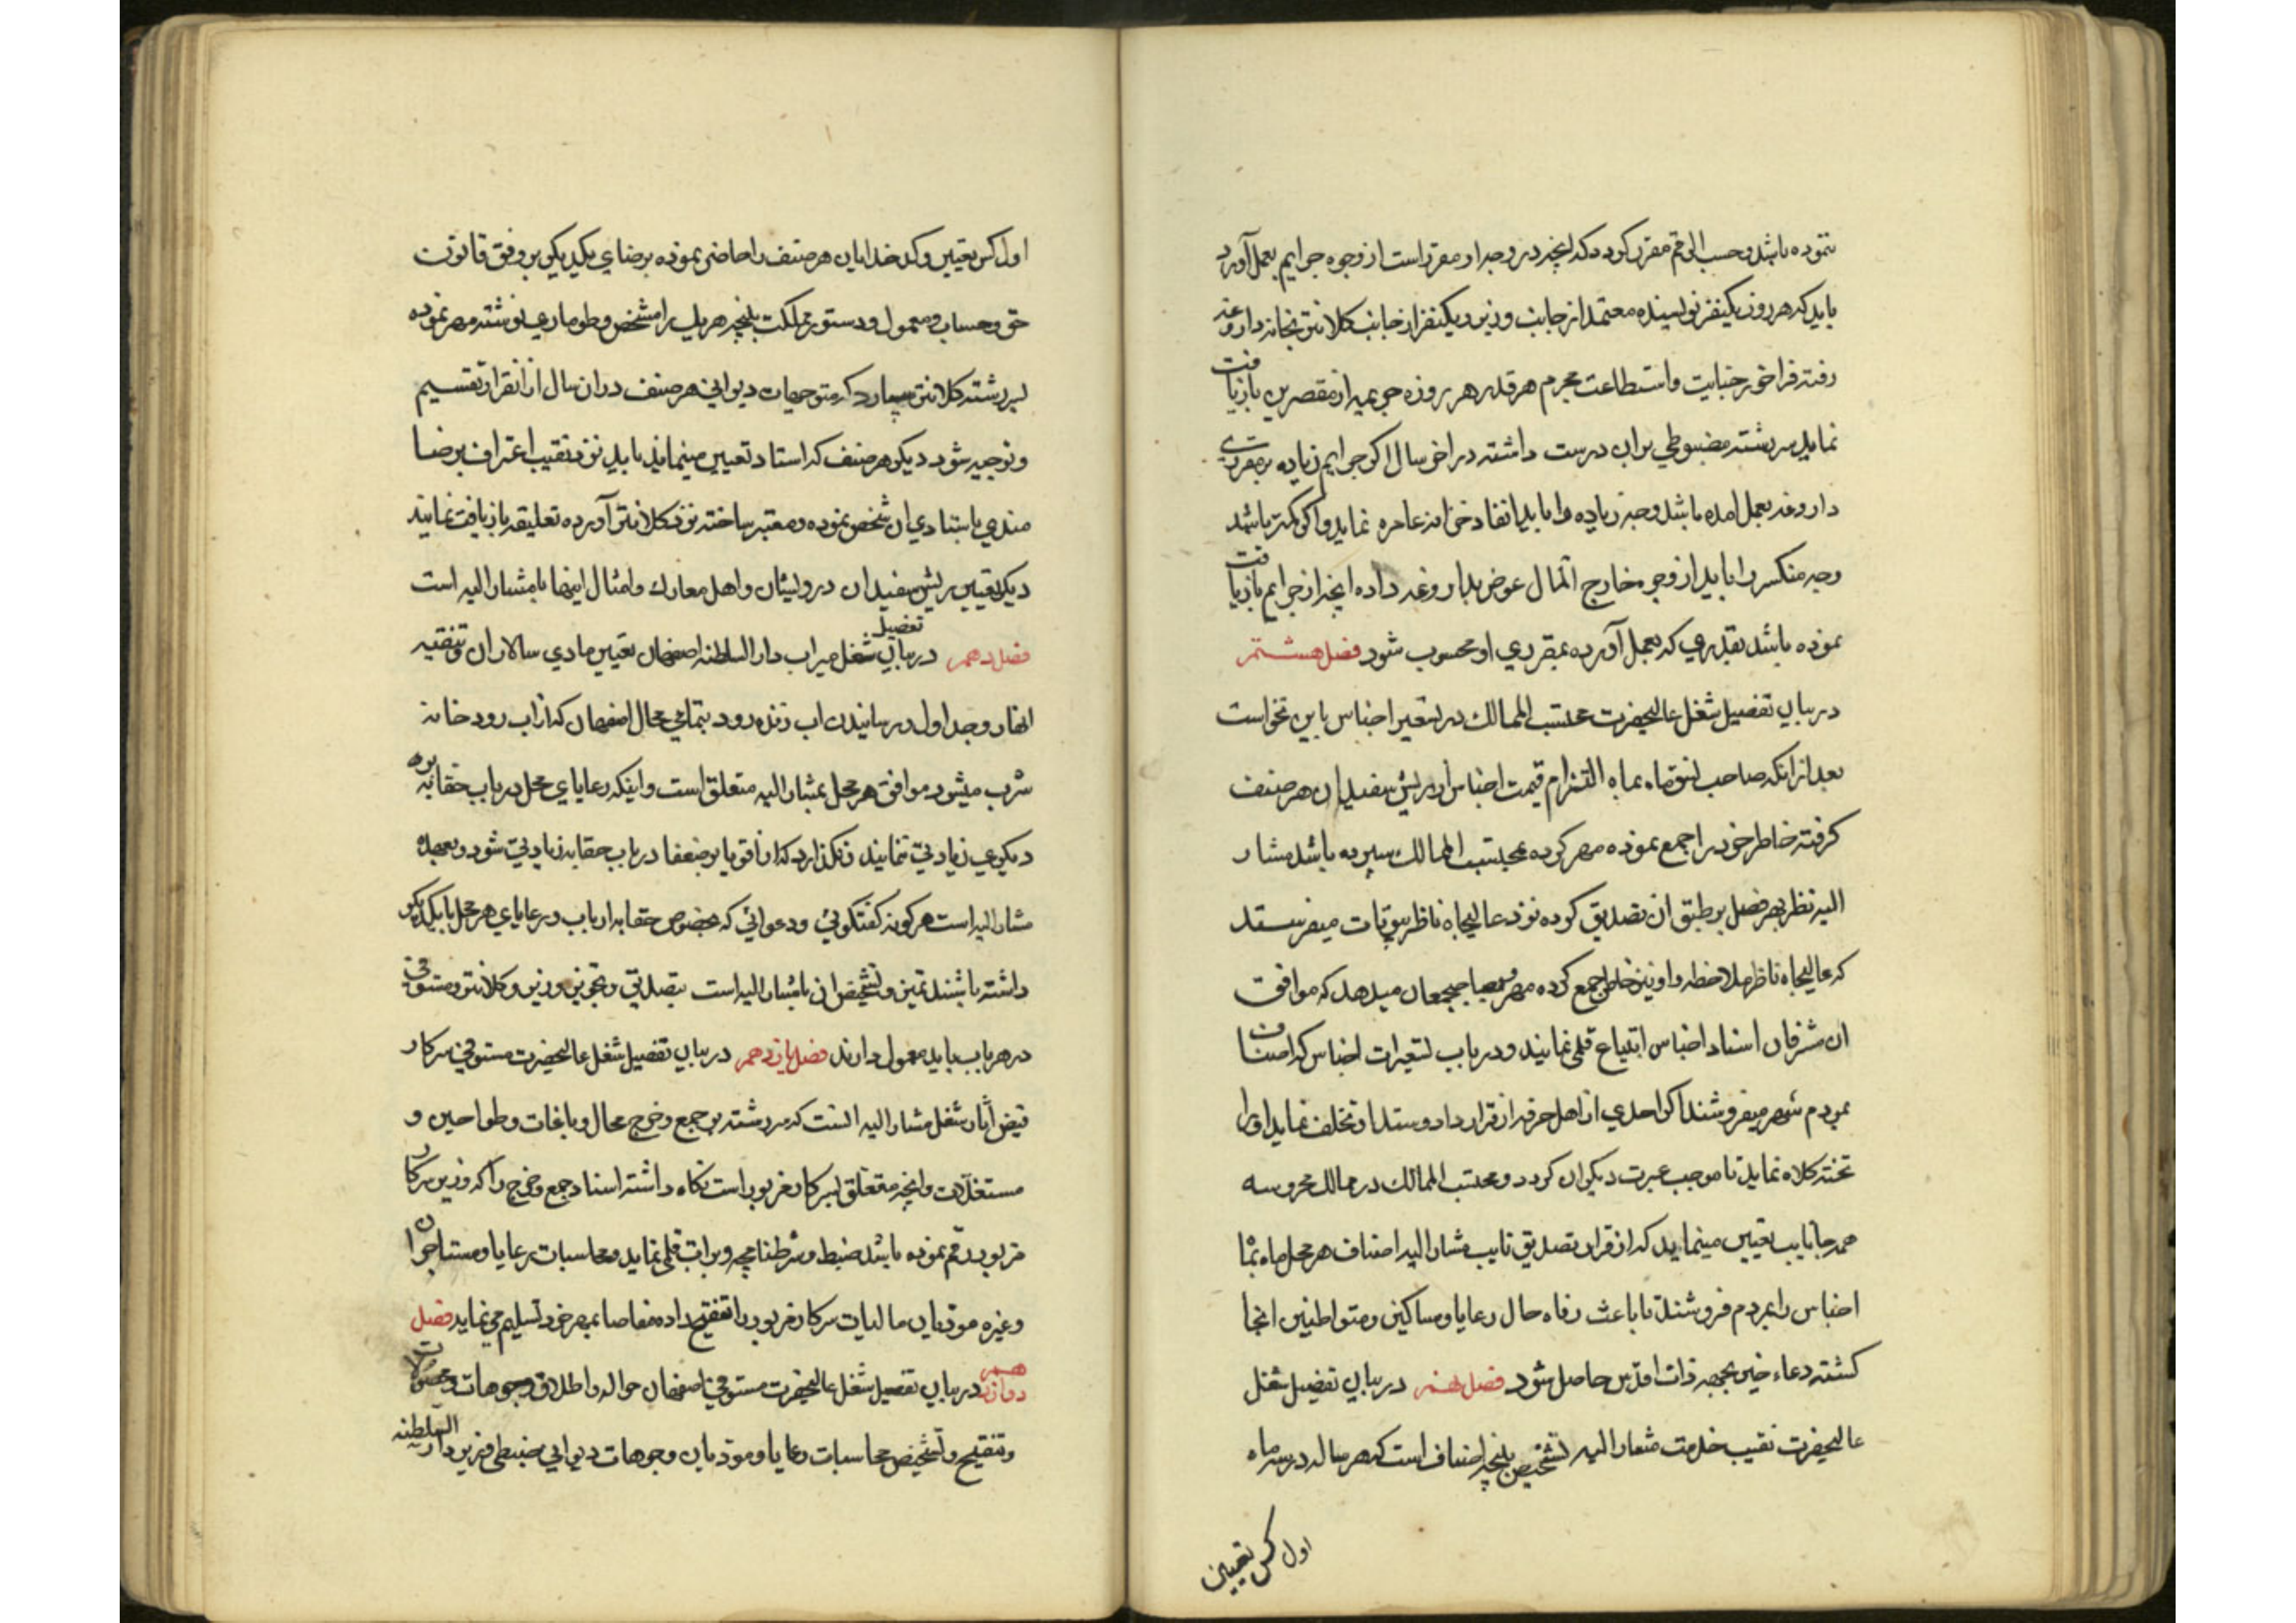 ننموده باشد و حسب الرقم مقرر گردد که آنچه در وجه او مقرر است از وجوه جرایم بعمل آورد
باید که هر روز یکنفر نویسنده معتمد از جانب وزیر و یکنفر از جانب کلانتر بخانه داروغه
رفته فراخور جنایت و استطاعت مجرم هر قدر هر روزه جریمه از مقصرین بازیافت
نمایند سررشته مضبوطی بران درست داشته در آخر سال اگر جرایم زیاده بر مقرری
داروغه بعمل امده باشد وجه زیاده را باید انفاد خزانه عامره نماید و اگر کمتر باشد
وجه منکسر را باید از وجوه خارج المال عوض بداروغه داده آنچه از جرایم بازیافت
نموده باشد بقدری که بعمل آورده بمقرری او محسوب شود فصل هشتم
در بیان تفصیل شغل عالیحضرت محتسب الممالک در تسعیر اجناس باین نحو است
بعد از آنکه صاحب نسق ماه بماه التزام قیمت اجناس از ریش سفیدان هر صنف
گرفته خاطر خود را جمع نموده مهر کرده بمحتسب الممالک سپرده باشد مشار
الیه نظر بهر فصل بر طبق ان تصدیق کرده نزد عالیجاه ناظر بیوتات میفرستد
که عالیجاه ناظر ملاحظه و او نیز خاطر جمع کرده مهر و بصاحبجمعان میدهد که موافق
ان مشرفان اسناد اجناس ابتیاع قلمی نمایند و در باب تسعیرات اجناس که اصناف
بمردم شهر میفروشند اگر احدی از اهل حرفه از قرار داد و ستد او تخلف نماید او را
تخته کلاه نماید تا موجب عبرت دیگران گردد و محتسب الممالک در ممالک محروسه
همه جا نایب تعیین مینماید که از قرار تصدیق نایب مشار الیه اصناف هر محل ماه بماه
اجناس را بمردم فروشند تا باعث رفاه حال رعایا و مساکین و متواطنین انجا
گشته دعاء خیر بجهه ذات اقدس حاصل شود فصل نهم در بیان تفصیل شغل
عالیحضرت نقیب خدمت مشار الیه تشخیص بنیچه اصناف است که هر ساله در سه ماه
اول کس تعیین
اول کس تعیین و کدخدایان هر صنف را حاضر نموده برضای یکدیگر بر وفق قانون
حق و حساب و معمول و دستور مملکت بنیچه هر یک را مشخص و طوماری نوشته مهر نموده
بسررشته کلانتر سپارد که متوجهات دیوانی هر صنف در ان سال از آنقرار تقسیم
و توجیه شود دیگر هر صنف که استاد تعیین مینمایند باید نزد نقیب اعتراف برضا
مندی باستادی ان شخص نموده و معتبر ساخته نزد کلانتر آورده تعلیقه بازیافت نمایند
دیگر تعیین ریش سفیدان درویشان و اهل معارک و امثال اینها با مشار الیه است
فصل دهم در بیان تفصیل شغل میراب دار السلطنه اصفهان تعیین مادی سالاران و تنقیه
انهار و جداول و رسانیدن اب زنده رود بتمامی محال اصفهان که از اب رودخانه
شرب میشود موافق هر محل بمشار الیه متعلق است و اینکه رعایای محل در باب حقابه بر
دیگری زیادتی ننمایند و نگذارد که از اقویا بر ضعفا در باب حقابه زیادتی شود و بعهده
مشار الیه است هر گونه گفتگوئی و دعوائی که بخصوص حقابه ارباب و رعایای هر محل با یکدیگر
داشته باشند تمیز و تشخیص ان با مشار الیه است بتصدیق و تجویز وزیر و کلانتر و مستوفی
در هر باب باید معمول دارند فصل یازدهم در بیان تفصیل شغل عالیحضرت مستوفی سرکار
فیض آثار شغل مشار الیه انست که سررشته بر جمع و خرج محال و باغات و طواحین و
مستغلات و انچه متعلق بسرکار مزبور است نگاه داشته اسناد جمع و خرج را که وزیر سرکار
مزبور رقم نموده باشد ضبط و شرطنامچه و برات قلمی نماید و محاسبات رعایا و مستاجران
و غیره مودیان مالیات سرکار مزبور را تنقیح داده مفاصا بمهر خود تسلیم می نماید فصل
دوازدهم در بیان تفصیل شغل عالیحضرت مستوفی اصفهان حواله و اطلاق وجوهات و محصولات
و تنقیح و تشخیص محاسبات رعایا و مودیان وجوهات دیوانی ضبطی وزیر دار السلطنه